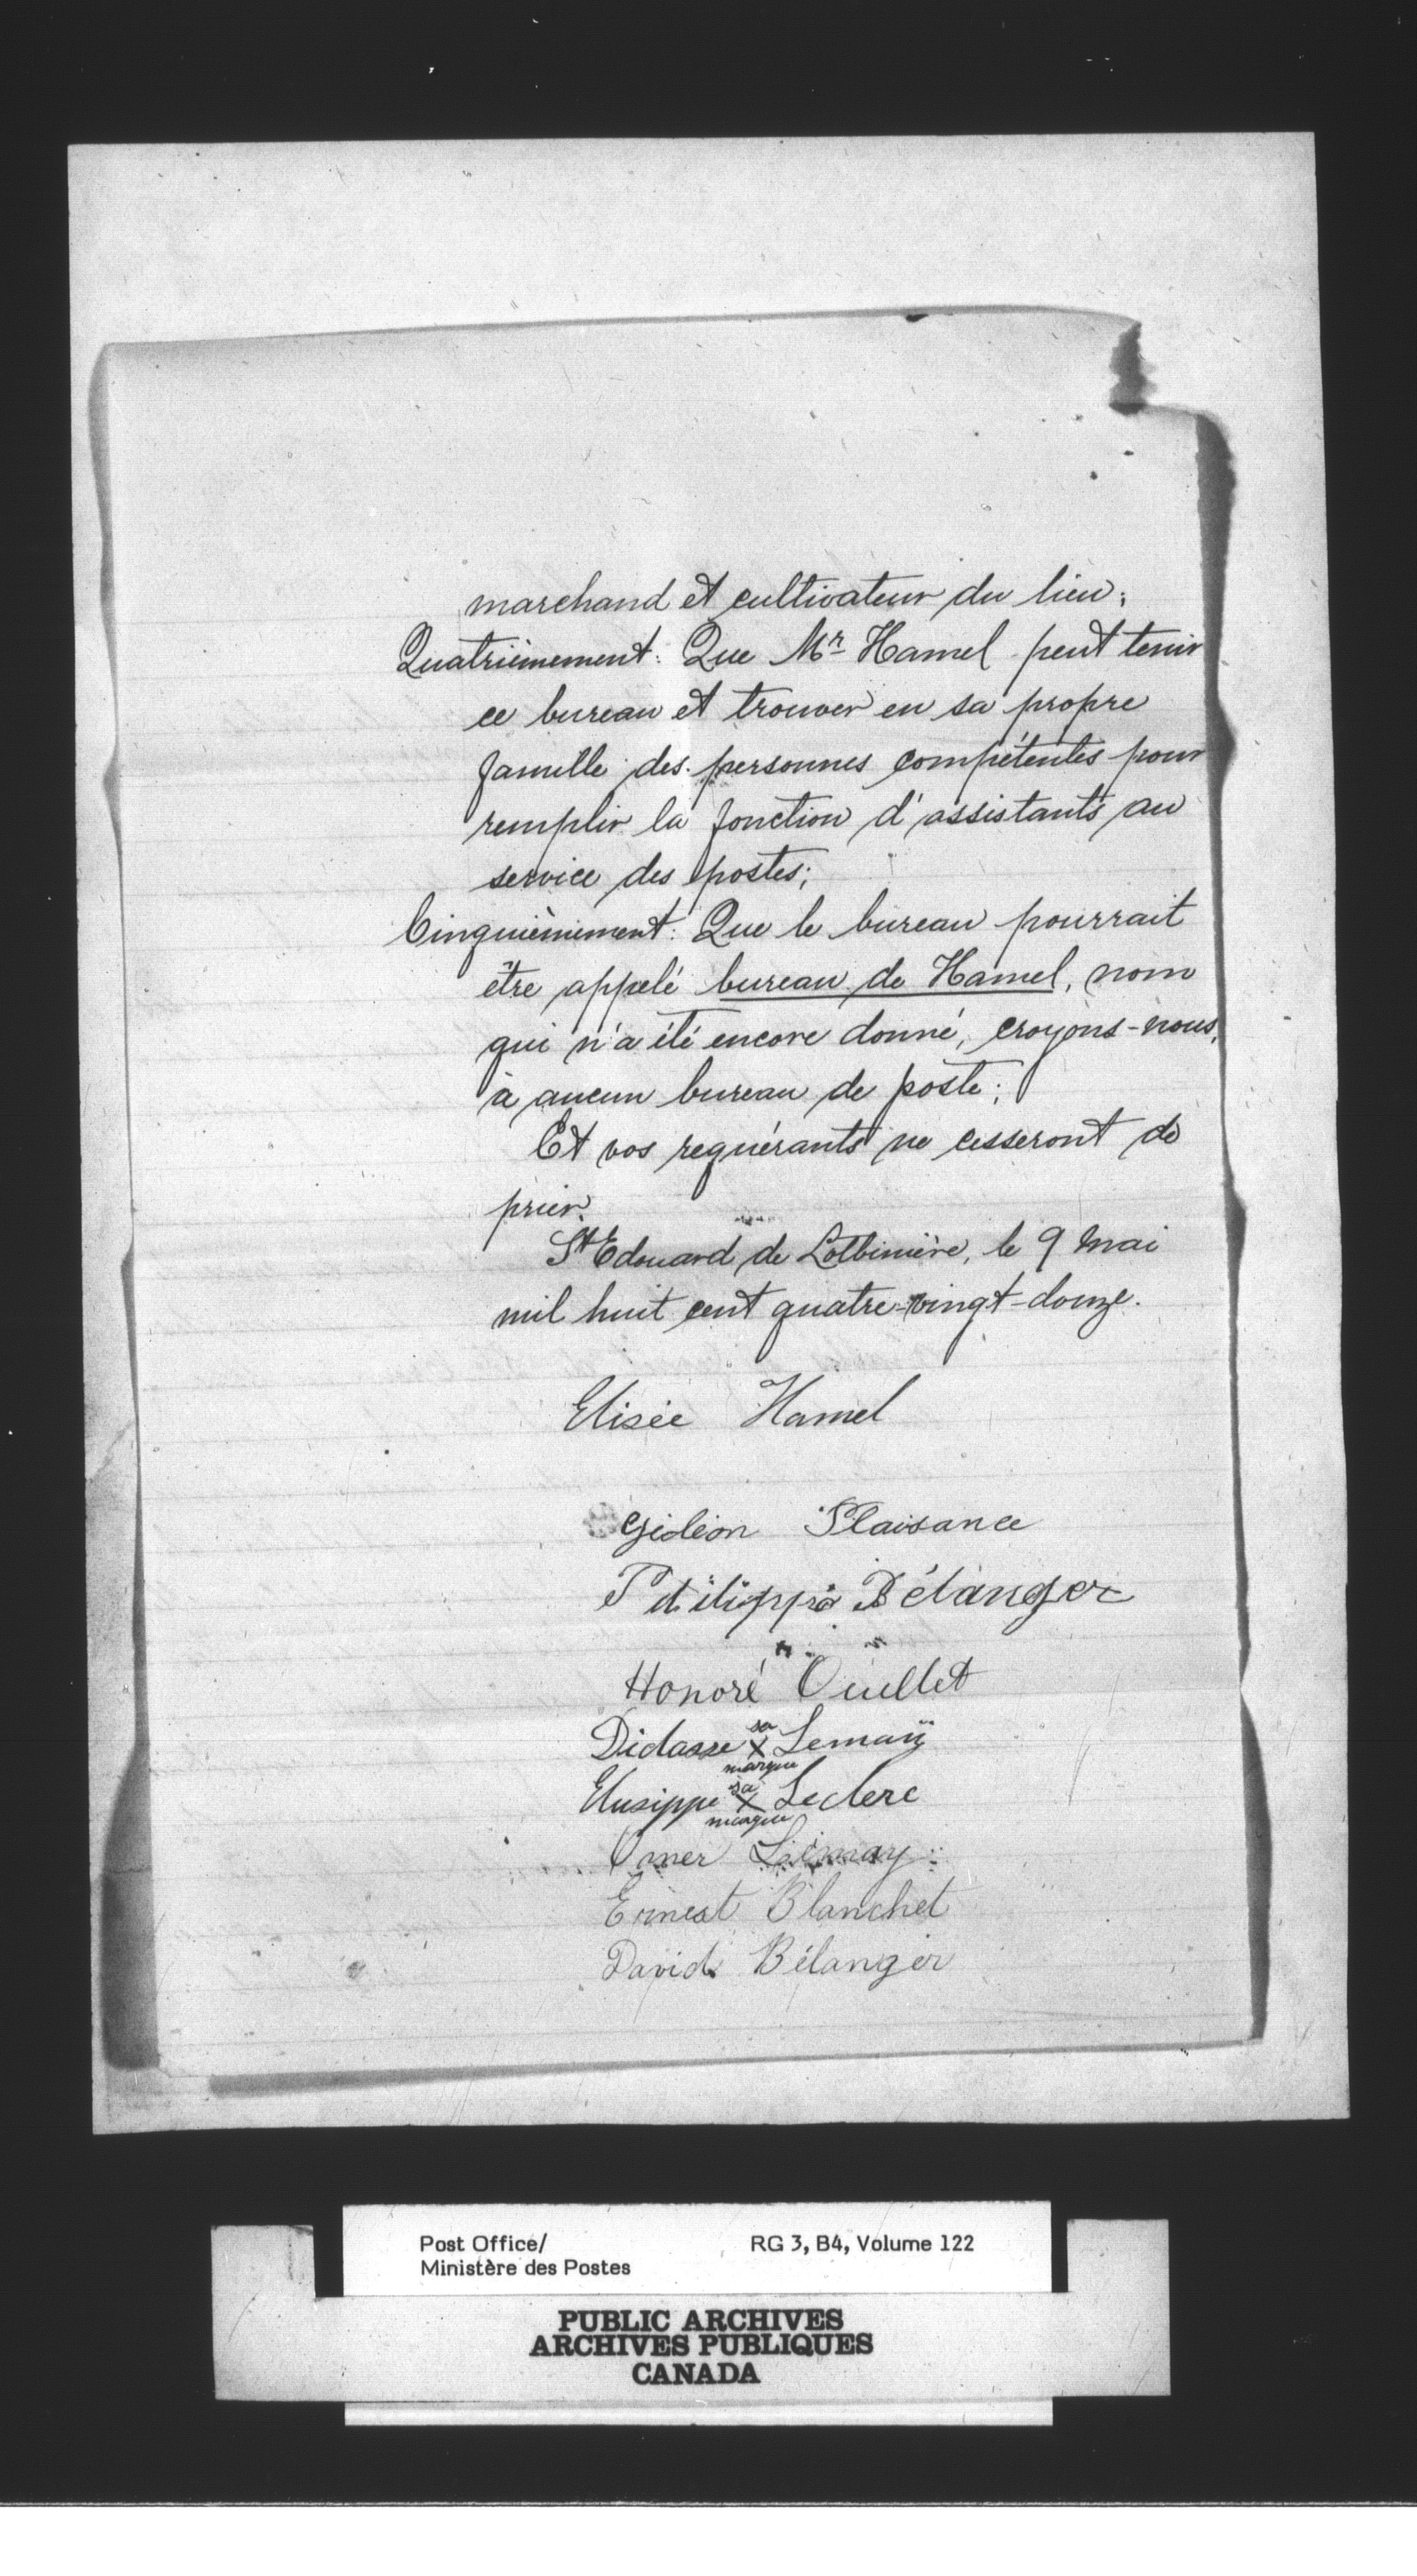 marchand et cultivateur du lieu;
Quatrièmement: Que Mr Hamel peut tenir
ce bureau et trouver en sa propre
famille des personnes compétentes pour
remplir la fonction d'assistants au
service des postes;
Cinquièmement: Que le bureau pourrait
être appelé bureau de Hamel, nom
qui n'a été encore donné, croyons-nous,
à aucun bureau de poste;
Et vos requérants ne cesseront de
prier.
St Edouard de Lotbinière, le 9 Mai
mil huit cent quatre-vingt-douze.
Elisée Hamel
Gideon Plaisance
Philippe Bélanger
Honoré Ouellet
Didasse sa X marque Lemay
Elusippe sa X marque Leclerc
Omer Lemay
Ernest Blanchet
David Bélanger
Post Office/ RG 3, B4, Volume 122
Ministère des Postes
PUBLIC ARCHIVES
ARCHIVES PUBLIQUES
CANADA